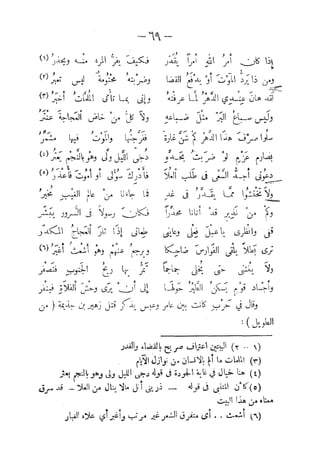 — ٦٩ —
إذا كان أمرُ اللهِ أمراً يُقدَّر فكيف يفرُّ المرء منه ويحذرُ (١)
ومن ذا يردُّ الموتَ أو يدفعُ القضا وضربتهُ محتومةٌ ليس تعبرُ (٢)
لقد هان عندي الدهرُ لما عرفتهُ وإني بما تأتي الملماتُ أخبرُ (٣)
وليس سباعُ البرّ مثل ضباعهِ ولا كل من خاض العجاجة عنترُ
سلوا صرفَ هذا الدهر كم شنَّ غارةً ففرَّجتها والموتُ فيها مشمِّرُ
بصارمِ عزمٍ لو ضربتُ بحدّهِ دجى الليل ولّى وهو بالنجم يعثرُ (٤)
دعوني أجدُّ السعي في طلب العلا فأدرك سؤلي أو أموتَ فأعذرُ (٥)
ولا تختشوا مما يقدَّرُ في غدٍ فما جاءنا من عالم الغيب مخبرُ
وكم من نذيرٍ قد أتانا محذراً فكان رسولاً في السرور يبشّرُ
قفي وانظري يا عبل فعلي وعايني طعاني إذا ثار العجاج المكدّرُ
تري بطلاً يلقى الفوارس ضاحكاً ويرجع عنهم وهو أشعث أغبرُ (٦)
ولا ينثني حتى يخلّي جماجماً تمرُّ بها ريحُ الجنوب فتصفرُ
وأجساد قومٍ يسكنُ الطيرُ حولها إلى أن يرى وحشَ الفلاةِ فينفرُ
وقال في حرب كانت بين عامر وعبس يذكر قتل زهير بن جذيمة (من
الطويل) :
(١ – ٢) البيتين اعتراف صريح بالقضاء والقدر
(٣) الملمات ما ألم بالانسان من نوازل الأيام
(٤) هنا خيال في غاية الجودة في قوله دجى الليل ولى وهو بالنجم يعثر
(٥) كأن المتنبي في قوله — ذريني أنل مالا ينال من العلا — قد سرق
معناه من هذا البيت
(٦) أشعث .. أي متفرق الشعر غير مرتب وأغبر أي علاه الغبار